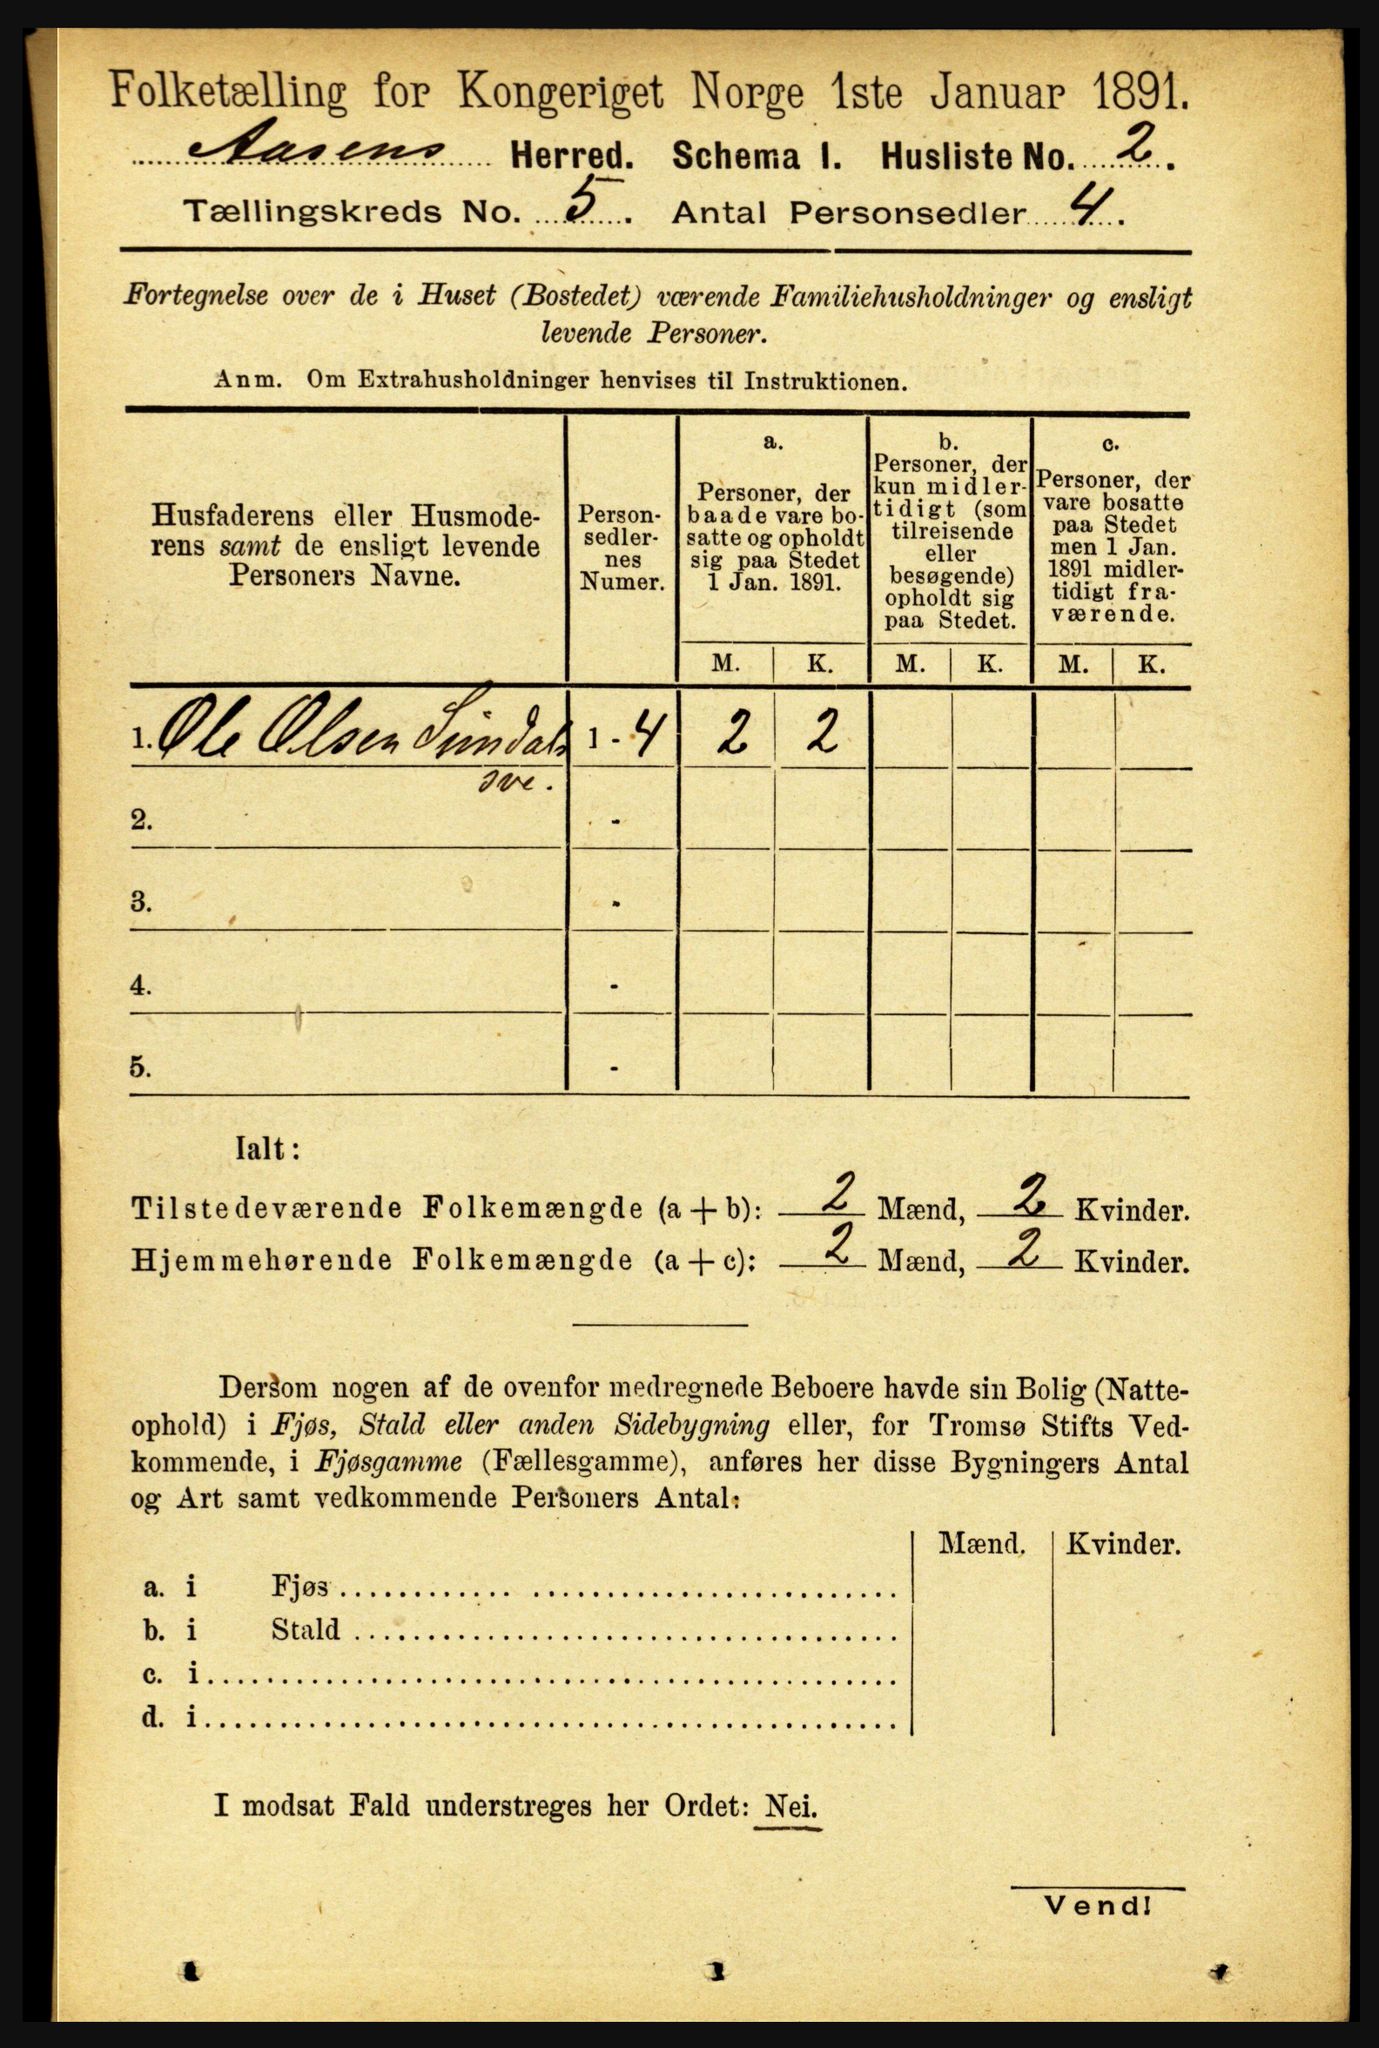 Folketælling for Kongeriget Norge 1ste Januar 1891.
Aasens Herred. Schema I. Husliste No. 2.
Tællingskreds No. 5. Antal Personsedler 4.
Fortegnelse over de i Huset (Bostedet) værende Familiehusholdninger og ensligt
levende Personer.
Anm. Om Extrahusholdninger henvises til Instruktionen.
Husfaderens eller Husmode-
rens samt de ensligt levende
Personers Navne.
Person-
sedler-
nes
Numer.
a.
Personer, der
baade vare bo-
satte og opholdt
sig paa Stedet
1 Jan. 1891.
b.
Personer, der
kun midler-
tidigt (som
tilreisende
eller
besøgende)
opholdt sig
paa Stedet.
c.
Personer, der
vare bosatte
paa Stedet
men 1 Jan.
1891 midler-
tidigt fra-
værende.
M. K. M. K. M. K.
1. Ole Olsen 1 - 4 2 2
2. -
3. -
4. -
5. -
Ialt:
Tilstedeværende Folkemængde (a + b): 2 Mænd, 2 Kvinder.
Hjemmehørende Folkemængde (a + c): 2 Mænd, 2 Kvinder.
Dersom nogen af de ovenfor medregnede Beboere havde sin Bolig (Natte-
ophold) i Fjøs, Stald eller anden Sidebygning eller, for Tromsø Stifts Ved-
kommende, i Fjøsgamme (Fællesgamme), anføres her disse Bygningers Antal
og Art samt vedkommende Personers Antal:
Mænd. Kvinder.
a. i Fjøs
b. i Stald
c. i
d. i
I modsat Fald understreges her Ordet: Nei.
Vend!